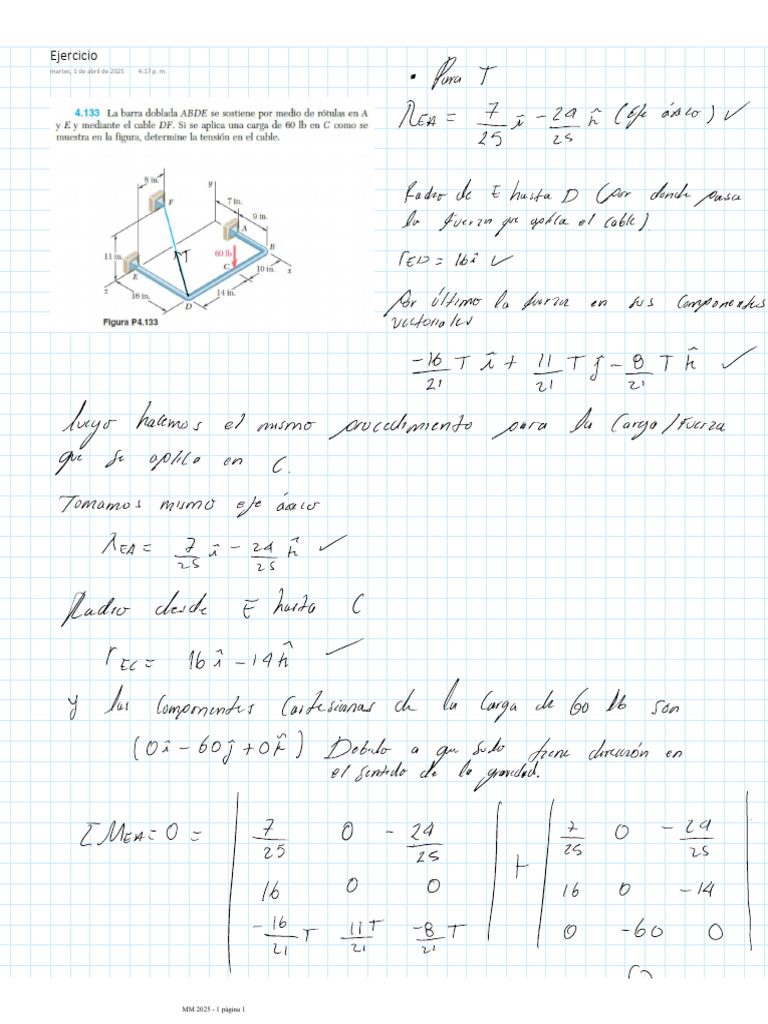 Ejercicio
martes, 1 de abril de 2025 4:17 p. m.
4.133 La barra doblada ABDE se sostiene por medio de rótulas en A
y E y mediante el cable DF. Si se aplica una carga de 60 lb en C como se
muestra en la figura, determine la tensión en el cable.
8 in.
F
y
7 in.
9 in.
A
11 in.
T
60 lb
B
E
C
10 in.
x
z
16 in.
14 in.
D
Figura P4.133
• Para T
λEA = 7/25 î - 24/25 k̂ (Eje áxico) ✓
Radio de E hasta D (por donde pasa
la fuerza que aplica el cable)
rED = 16î ✓
Por último la fuerza en sus componentes
vectoriales
-16/21 T î + 11/21 T ĵ - 8/21 T k̂ ✓
luego hacemos el mismo procedimiento para la Carga/Fuerza
que se aplica en C.
Tomamos mismo eje áxico
λEA = 7/25 î - 24/25 k̂ ✓
Radio desde E hasta C
rEC = 16î - 14k̂ ✓
y las componentes Cartesianas de la Carga de 60 lb son
(0î - 60ĵ + 0k̂) Debido a que solo tiene dirección en
el sentido de la gravedad.
ΣMEA = 0 = | 7/25 0 -24/25 | + | 7/25 0 -24/25 |
| 16 0 0 | | 16 0 -14 |
| -16/21 T 11/21 T -8/21 T | | 0 -60 0 |
MM 2025 - 1 página 1